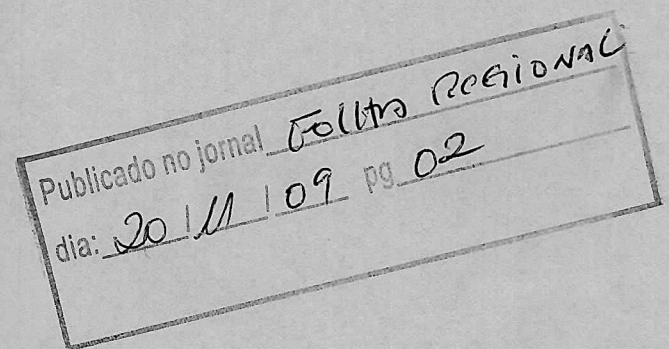 Publicado no jornal Folha REGIONAL
dia: 20/11/09 pg 02